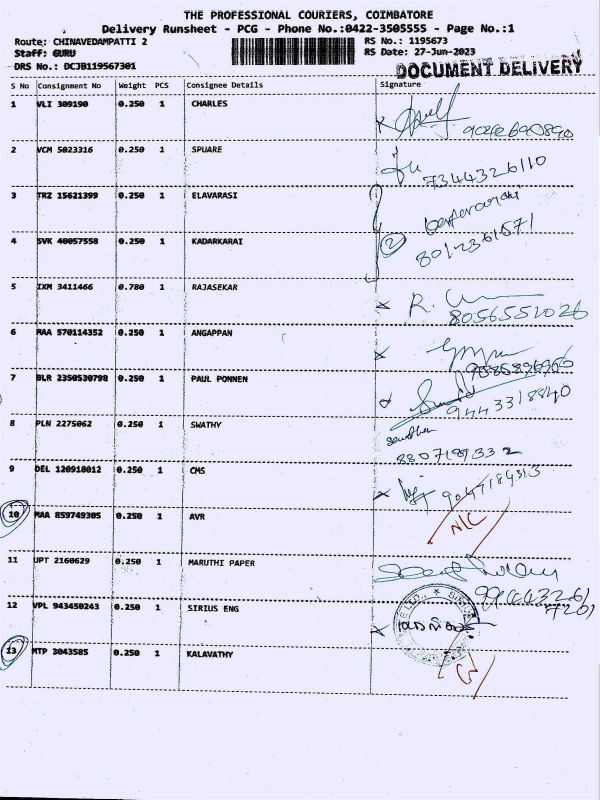 THE PROFESSIONAL COURIERS, COIMBATORE
Delivery Runsheet - PCG - Phone No.:0422-3505555 - Page No.:1
Route: CHINAVEDAMPATTI 2 RS No.: 1195673
Staff: GURU RS Date: 27-Jun-2023
DRS No.: DCJB119567301 DOCUMENT DELIVERY
S No Consignment No Weight PCS Consignee Details Signature
1 VLI 309190 0.250 1 CHARLES
2 VCM 5023316 0.250 1 SPUARE 7344326110
3 TRZ 15621399 0.250 1 ELAVARASI
4 SVK 40057558 0.250 1 KADARKARAI 2 8012361571
5 IXM 3411466 0.780 1 RAJASEKAR 8056551026
6 MAA 570114352 0.250 1 ANGAPPAN
7 BLR 2350530798 0.250 1 PAUL PONNEN 9443318840
8 PLN 2275062 0.250 1 SWATHY
9 DEL 120918012 0.250 1 CMS
10 MAA 859749305 0.250 1 AVR N/C
11 UPT 2160629 0.250 1 MARUTHI PAPER
12 VPL 943450243 0.250 1 SIRIUS ENG
13 MTP 3043585 0.250 1 KALAVATHY